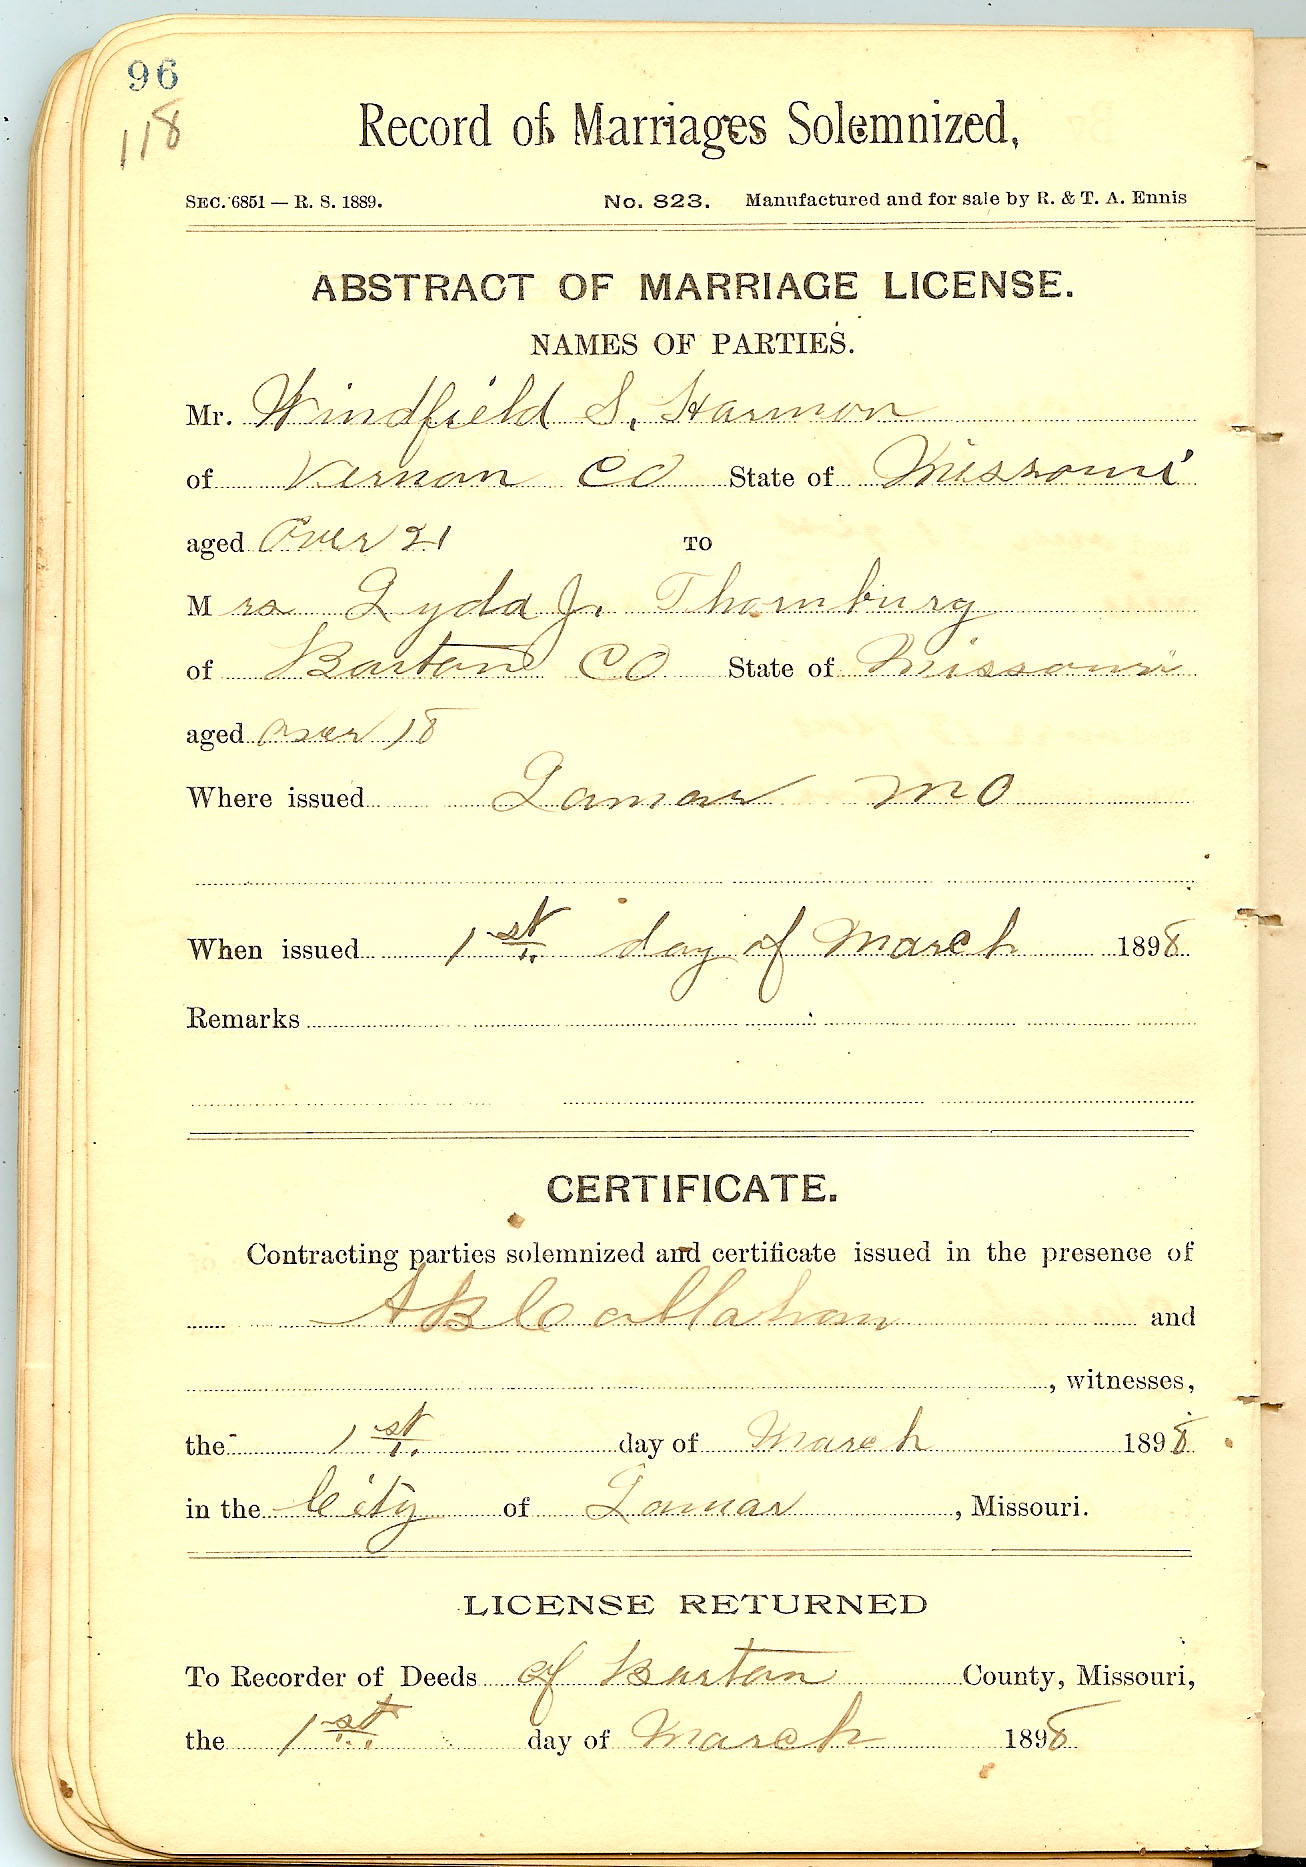 96
118
Record of Marriages Solemnized,
SEC. 6851 — R. S. 1889. No. 823. Manufactured and for sale by R. & T. A. Ennis
ABSTRACT OF MARRIAGE LICENSE.
NAMES OF PARTIES.
Mr. Windfield S. Harmon
of Vernon CO State of Missouri
aged Over 21 TO
Mrs Lydd J. Thornburg
of Barton CO State of Missouri
aged over 18
Where issued Lamar MO
When issued 1st day of March 1898
Remarks
CERTIFICATE.
Contracting parties solemnized and certificate issued in the presence of
A B Callaham and
, witnesses,
the 1st day of March 1898
in the City of Lamar, Missouri.
LICENSE RETURNED
To Recorder of Deeds of Barton County, Missouri,
the 1st day of March 1898